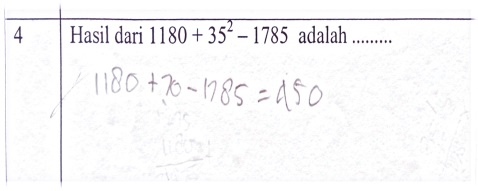 4 Hasil dari 1180 + 35² – 1785 adalah .........
1180 + 70 - 1785 = 450